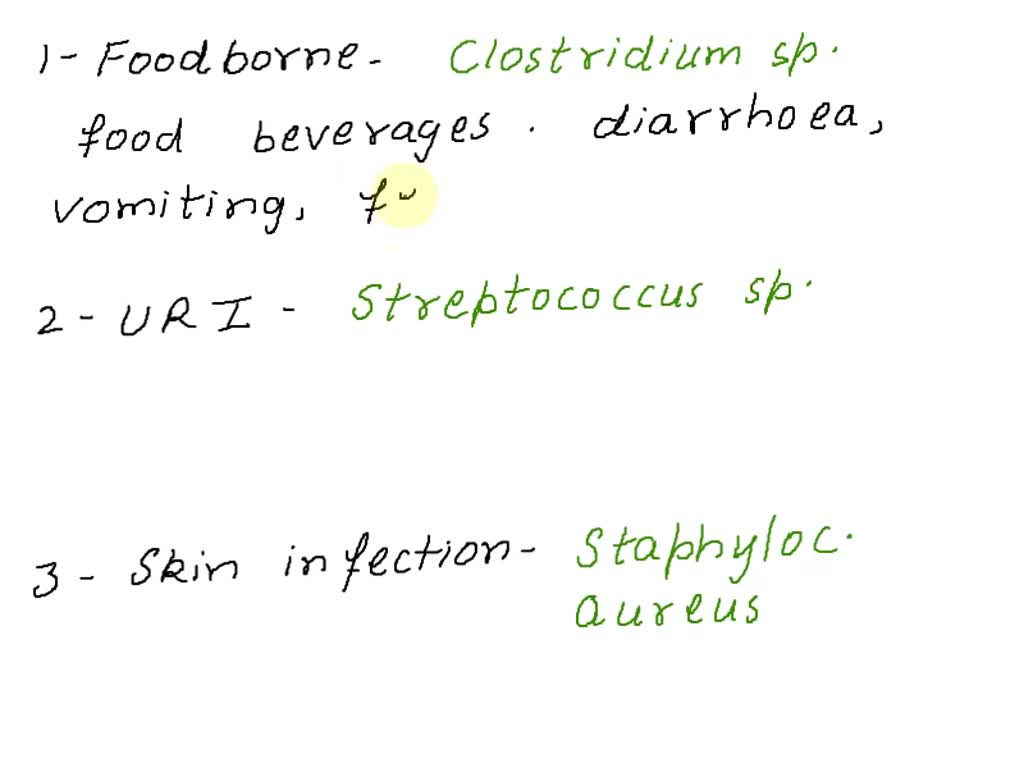 1- Foodborne- Clostridium sp.
food beverages. diarrhoea,
vomiting,
2- URI- Streptococcus sp.
3- Skin infection- Staphyloc.
aureus